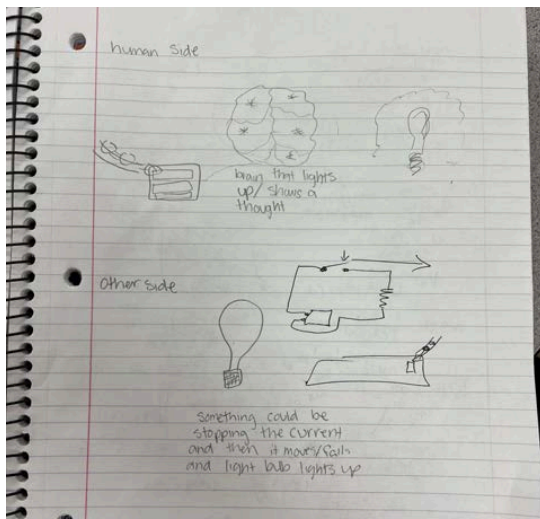 human side
brain that lights
up/ shows a
thought
Other side
something could be
stopping the current
and then it moves/falls
and light bulb lights up